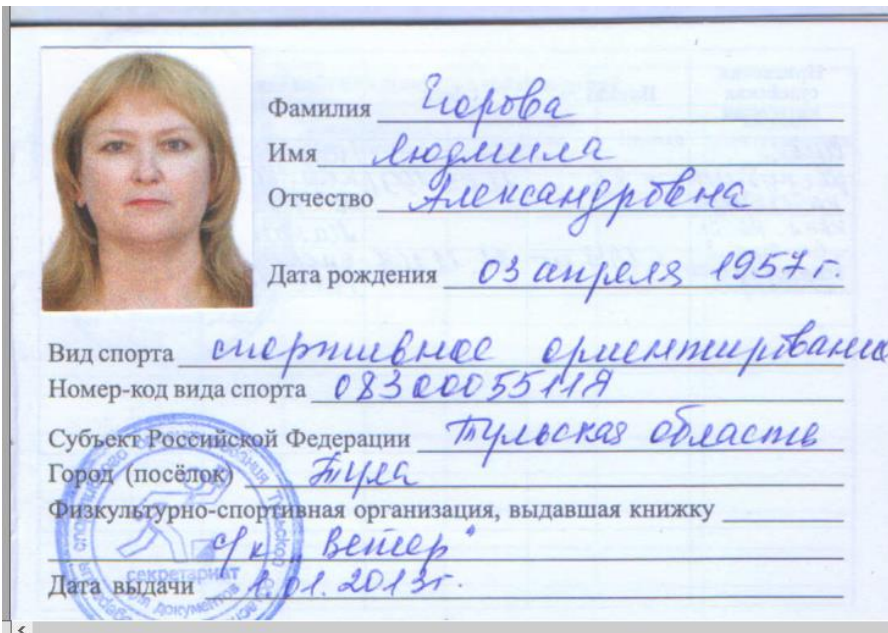 Фамилия Егорова
Имя Людмила
Отчество Александровна
Дата рождения 03 апреля 1957 г.
Вид спорта спортивное ориентирование
Номер-код вида спорта 0830005511Я
Субъект Российской Федерации Тульская область
Город (посёлок) Тула
Физкультурно-спортивная организация, выдавшая книжку
с/к "Ветер"
секретариат
Дата выдачи 1.01.2013г.
для документов